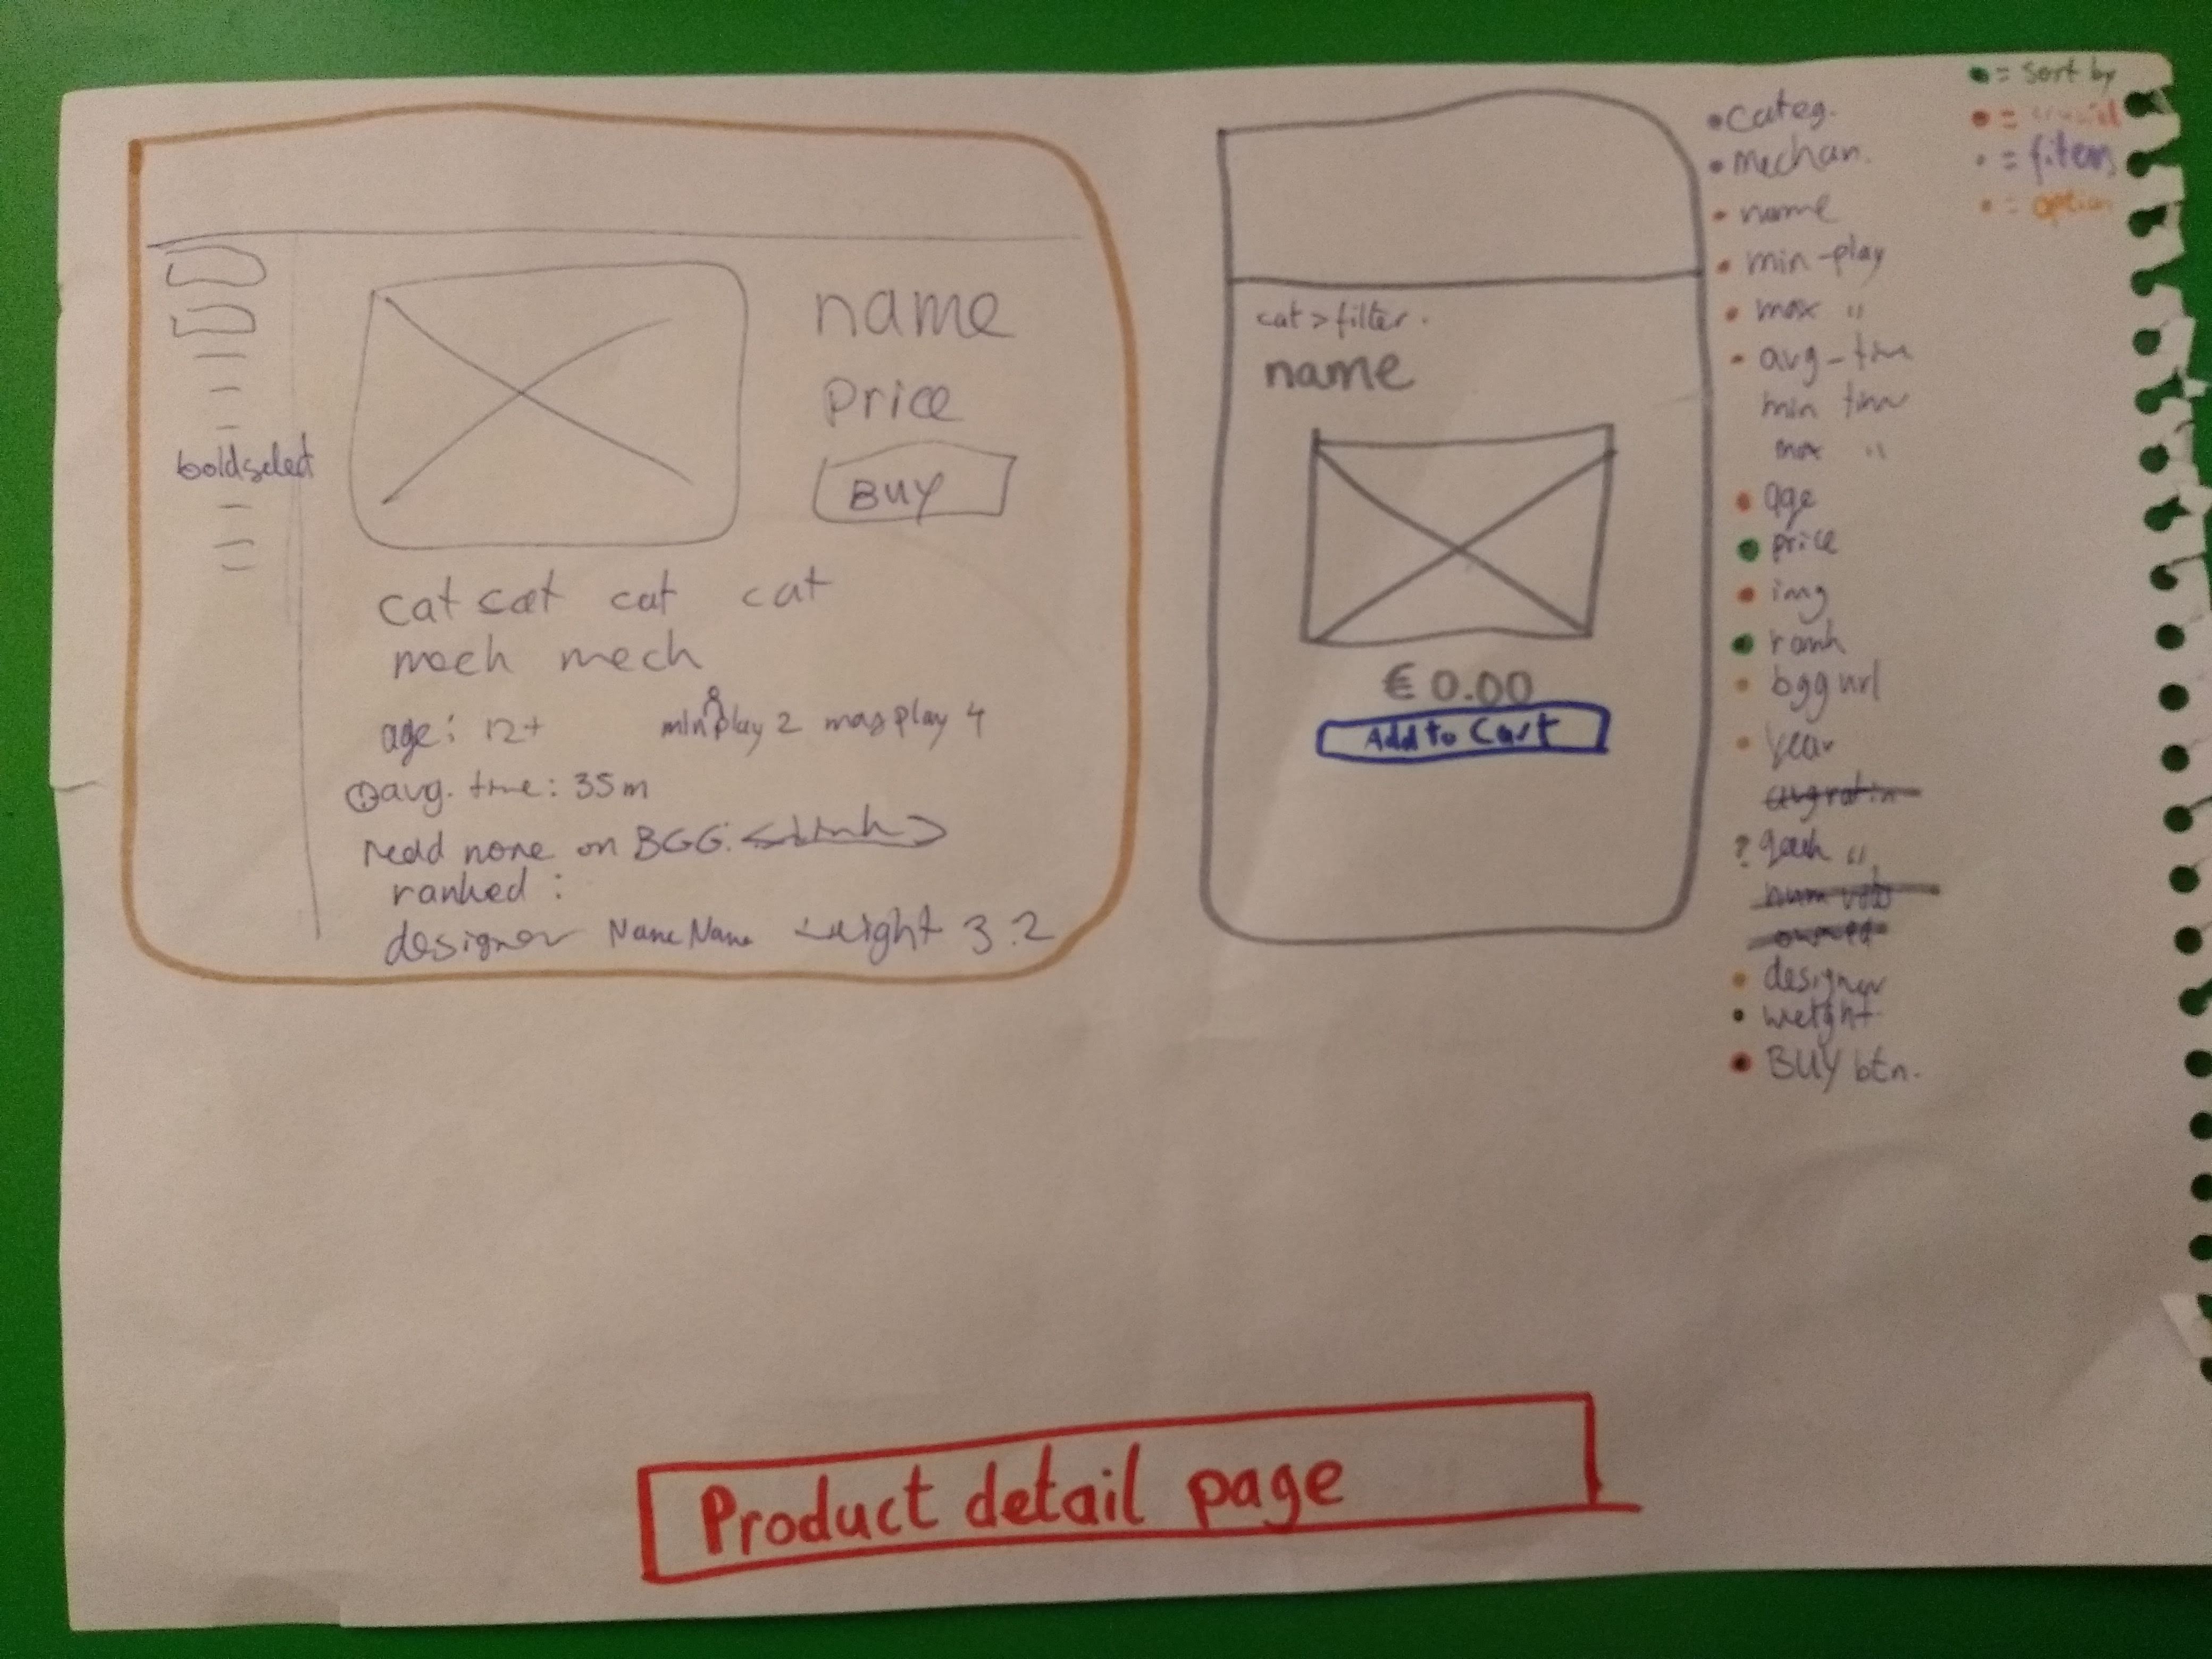 boldselect
name
price
BUY
cat cat cat cat
mech mech
age: 12+ min play 2 max play 4
avg. time: 35m
read more on BGG: <link>
ranked :
designer Name Name weight 3.2
cat > filter.
name
€ 0.00
Add to Cart
• categ.
• mechan.
• name
• min-play
• max "
• avg-time
min time
max "
• age
• price
• img
• rank
• bgg url
• year
avgratin
?
num vote
owned
• designer
• weight
• BUY btn.
• = sort by
• = crucial
• = filters
• = option
Product detail page